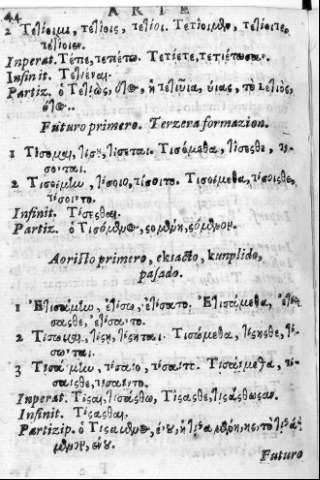 44 ARTE
2 Τετίοιμι, τετίοις, τετίοι. Τετίοιμεν, τετίοιτε,
τετίοιεν.
Inperat. Τέτιε, τετιέτω. Τετίετε, τετιέτωσαν.
Infinit. Τετιέναι.
Partiz. ὁ Τετιὼς, ότος, ἡ τετιῦια, ύιας, το τετιὸς,
ότος.
Futuro primero. Terzera formazion.
1 Τίσομαι, τίσῃ, τίσεται. Τισόμεθα, τίσεσθε, τίσονται.
2 Τισοίμην, τίσοιο, τίσοιτο. Τισοίμεθα, τίσοισθε,
τίσοιντο.
Infinit. Τίσεσθαι.
Partiz. ὁ Τισόμενος,
Aoristo primero, ekiacto, kunplido,
pasado.
1 Ἐτισάμην, ἐτίσω, ἐτίσατο. Ἐτισάμεθα, ἐτίσασθε, ἐτίσαντο.
2 Τίσωμαι, τίσῃ, τίσηται. Τισώμεθα, τίσησθε, τίσωνται.
3 Τισαίμην, τίσαιο, τίσαιτο. Τισαίμεθα, τίσαισθε, τίσαιντο.
Inperat. Τίσαι, τισάσθω, Τίσασθε, τισάσθωσαν.
Infinit. Τίσασθαι.
Partizip. ὁ Τισάμενος, ένου, ἡ τισαμένη, ης, το τισάμενον, ένου.
Futuro